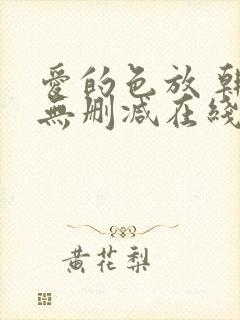 愛的色放 韓
無刪減在綫
黄花梨